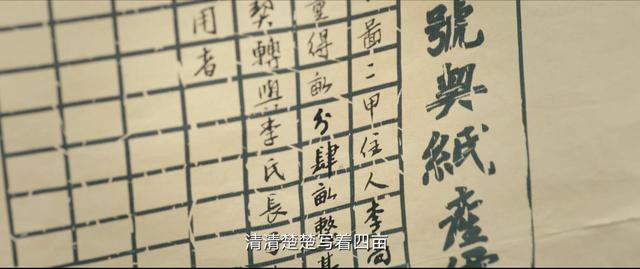 號契紙產價
啚二甲住人李
重得畝分肆畝整其
契轉與李氏長
用者
清清楚楚写着四亩